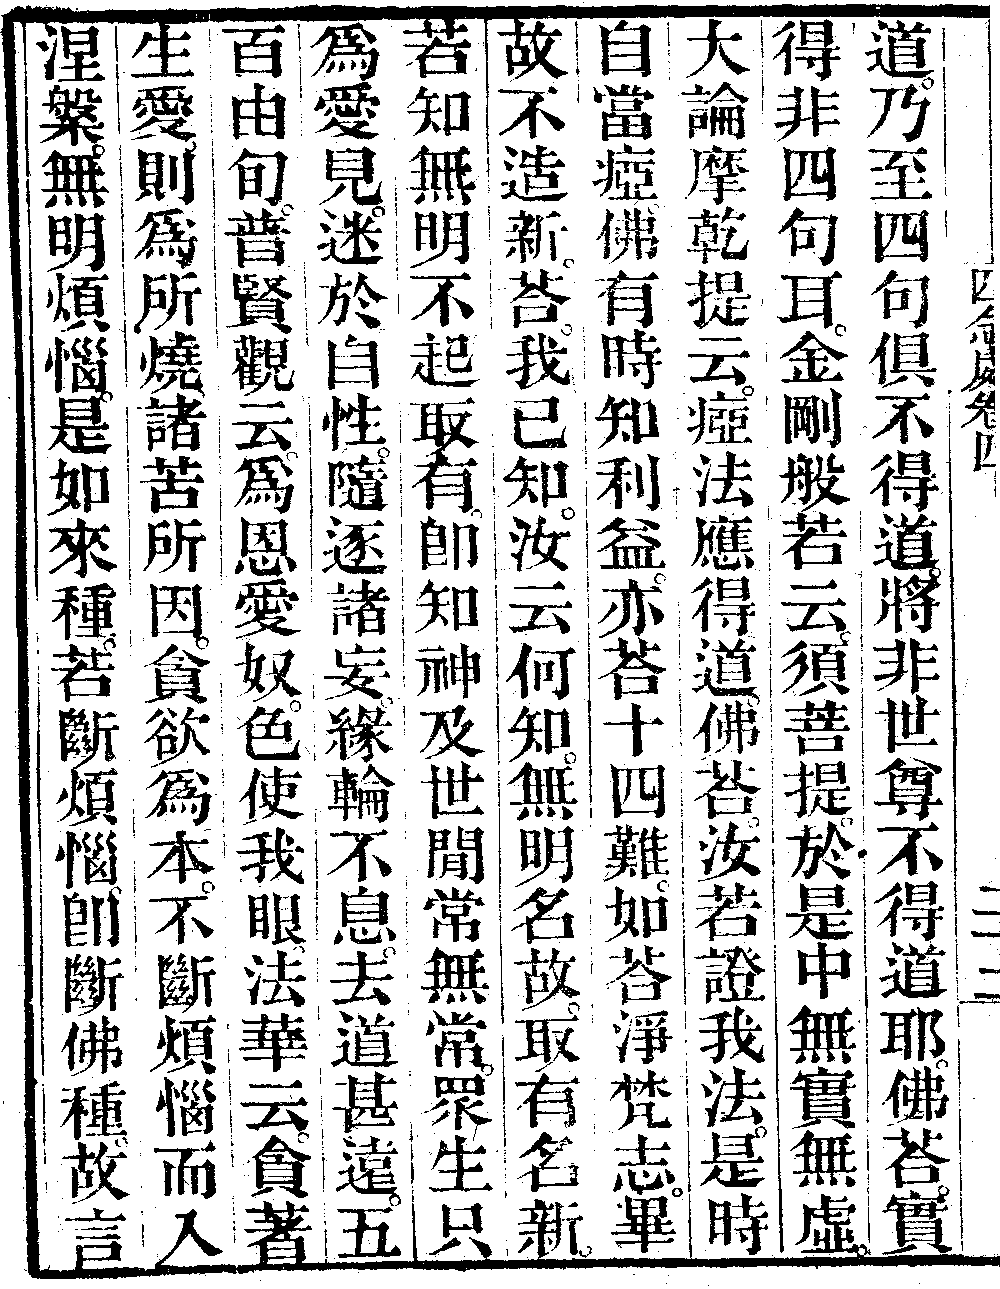 道。乃至四句俱不得道。將非世尊不得道耶。佛荅。實
得非四句耳。金剛般若云。須菩提。於是中無實無虛。
大論摩乾提云。瘂法應得道。佛荅。汝若證我法。是時
自當瘂。佛有時知利益。亦荅十四難。如荅淨梵志。畢
故不造新。荅。我已知。汝云何知。無明名故。取有名新。
若知無明不起取有。卽知神及世閒常無常。眾生只
爲愛見。迷於自性。隨逐諸妄。緣輪不息。去道甚遠。五
百由旬。普賢觀云。爲恩愛奴。色使我眼。法華云。貪著
生愛。則爲所燒。諸苦所因。貪欲爲本。不斷煩惱而入
涅槃。無明煩惱。是如來種。若斷煩惱。卽斷佛種。故言
四念處卷四
二二